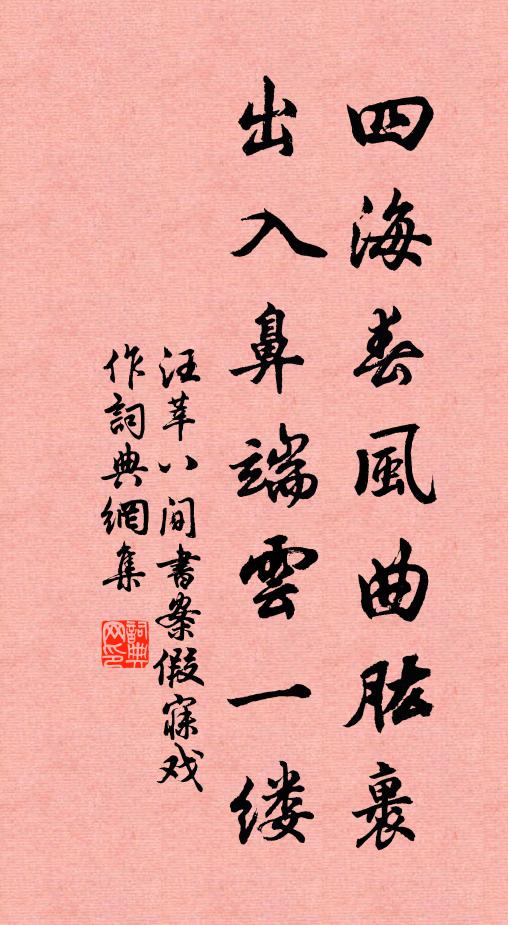 四海春風曲肱裹
出入鼻端雲一缕
汪莘八间書案假寐戏
作詞典網集
詞典网印